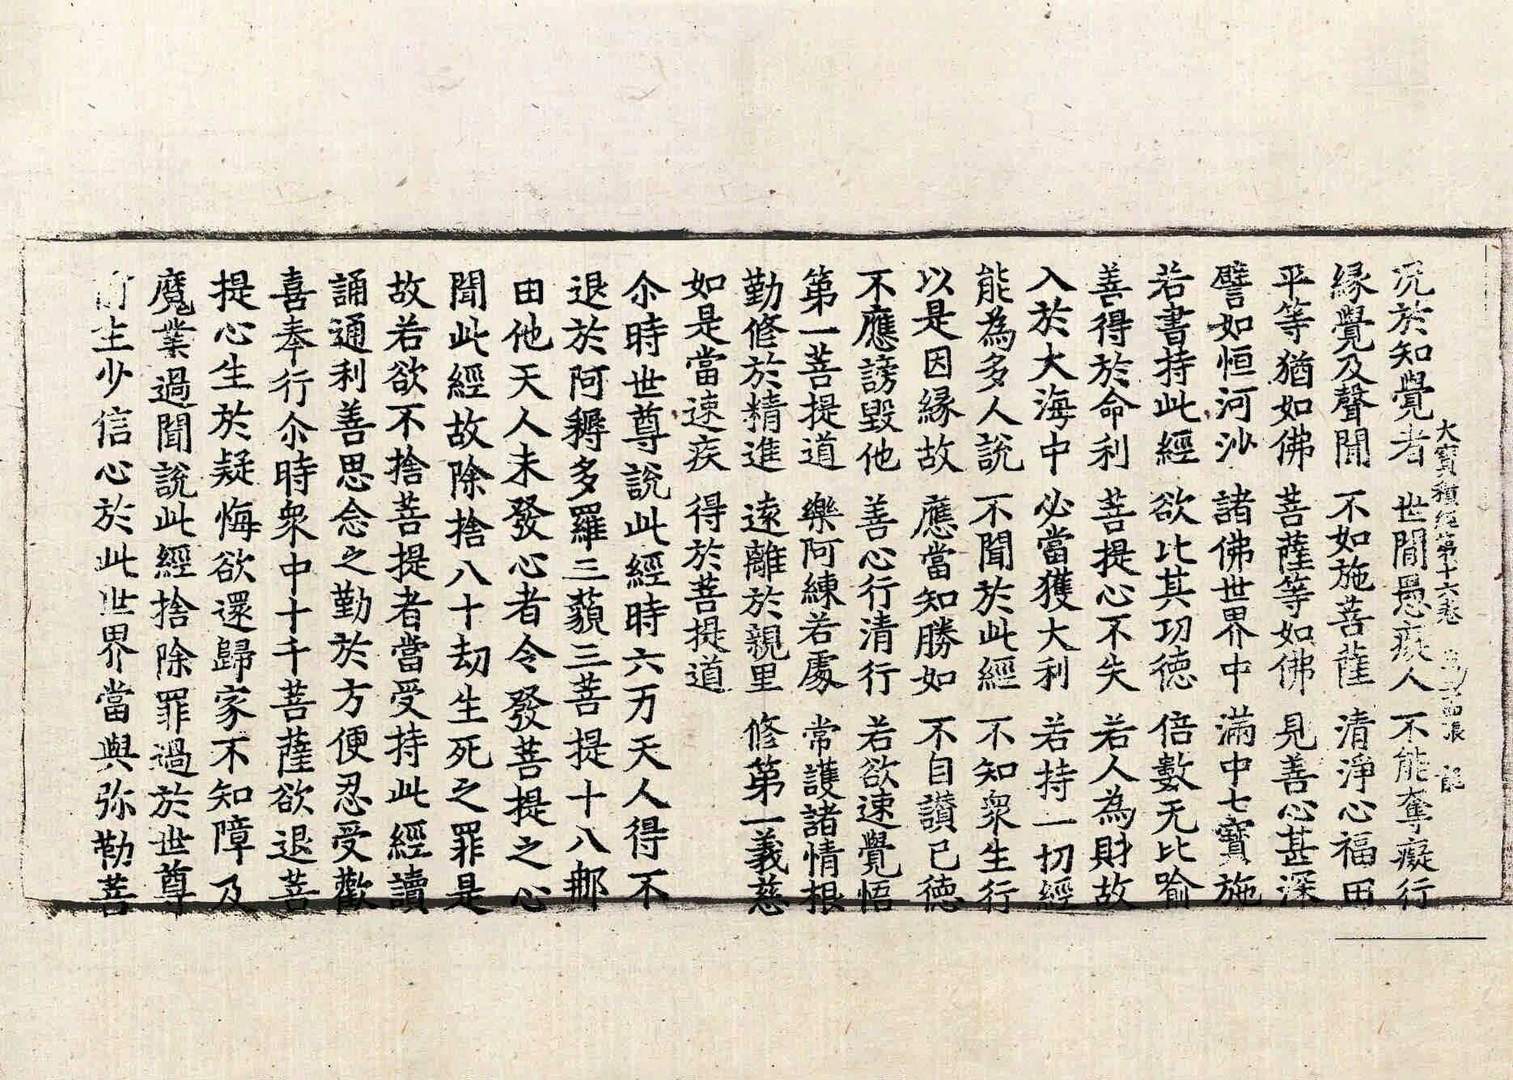 大寶積經第十六卷 第二十四張 龍
況於知覺者 世間愚癡人 不能奪癡行
緣覺及聲聞 不如施菩薩 清淨心福田
平等猶如佛 菩薩等如佛 見善心甚深
譬如恒河沙 諸佛世界中 滿中七寶施
若書持此經 欲比其功德 倍數无比喻
善得於命利 菩提心不失 若人為財故
入於大海中 必當獲大利 若持一切經
能為多人說 不聞於此經 不知衆生行
以是因緣故 應當知勝如 不自讃己德
不應謗毀他 善心行清行 若欲速覺悟
第一菩提道 樂阿練若處 常護諸情根
勤修於精進 遠離於親里 修第一義慈
如是當速疾 得於菩提道
尒時世尊說此經時六万天人得不
退於阿耨多羅三藐三菩提十八那
由他天人未發心者令發菩提之心
聞此經故除捨八十劫生死之罪是
故若欲不捨菩提者當受持此經讀
誦通利善思念之勤於方便忍受歡
喜奉行尒時衆中十千菩薩欲退菩
提心生於疑悔欲還歸家不知障及
魔業過聞說此經捨除罪過於世尊
所生少信心於此世界當與弥勒菩